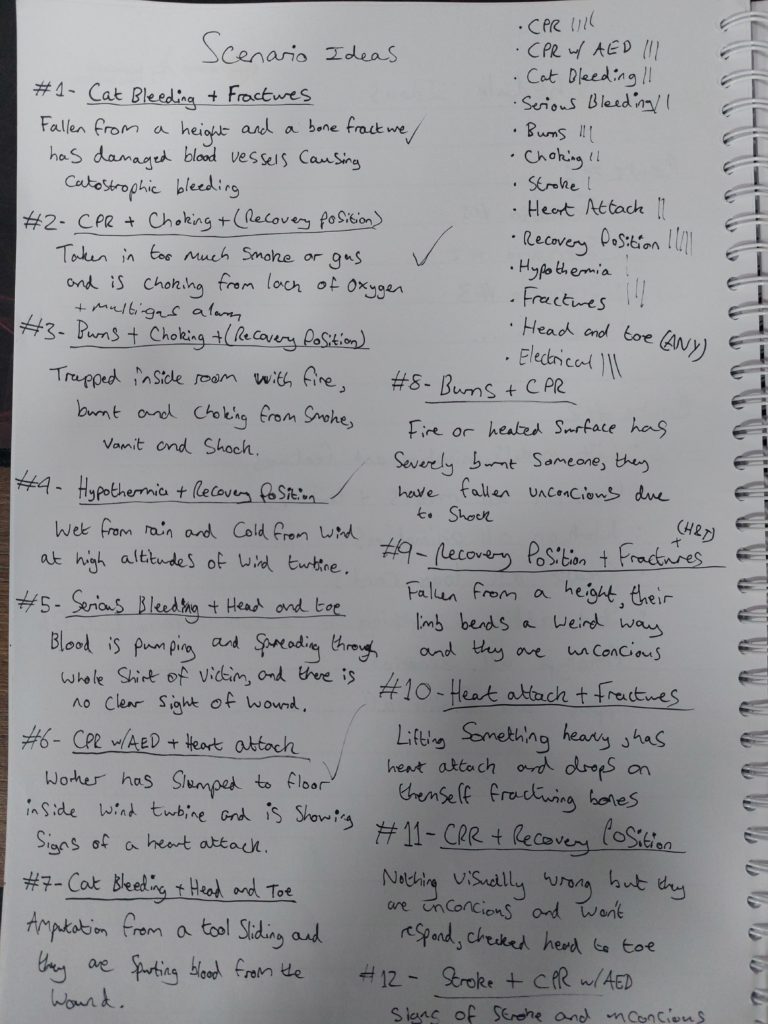 Scenario Ideas
#1 - Cat Bleeding + Fractures
Fallen from a height and a bone fracture
has damaged blood vessels causing
catostrophic bleeding
#2 - CPR + Choking + (Recovery position)
Taken in too much smoke or gas
and is choking from lack of oxygen
+ multigas alarm
#3 - Burns + Choking + (Recovery Position)
Trapped inside room with fire,
burnt and choking from smoke,
vomit and shock.
#4 - Hypothermia + Recovery Position
Wet from rain and cold from wind
at high altitudes of wind turbine.
#5 - Serious Bleeding + Head and toe
Blood is pumping and spreading through
whole shirt of victim, and there is
no clear sight of wound.
#6 - CPR w/AED + Heart attack
Worker has slumped to floor
inside wind turbine and is showing
signs of a heart attack.
#7 - Cat Bleeding + Head and Toe
Amputation from a tool sliding and
they are spurting blood from the
wound.
• CPR ||||
• CPR w/ AED |||
• Cat Bleeding ||
• Serious Bleeding ||
• Burns |||
• Choking ||
• Stroke |
• Heart Attack ||
• Recovery Position |||||
• Hypothermia |
• Fractures |||
• Head and toe (ANY)
• Electrical |||
#8 - Burns + CPR
Fire or heated surface has
severely burnt someone, they
have fallen unconcious due
to shock
(H&T)
#9 - Recovery Position + Fractures +
Fallen from a height, their
limb bends a weird way
and they are unconcious
#10 - Heart attack + Fractures
Lifting something heavy, has
heart attack and drops on
themself fracturing bones
#11 - CPR + Recovery Position
Nothing visually wrong but they
are unconcious and won't
respond, checked head to toe
#12 - Stroke + CPR w/AED
Signs of stroke and unconcious